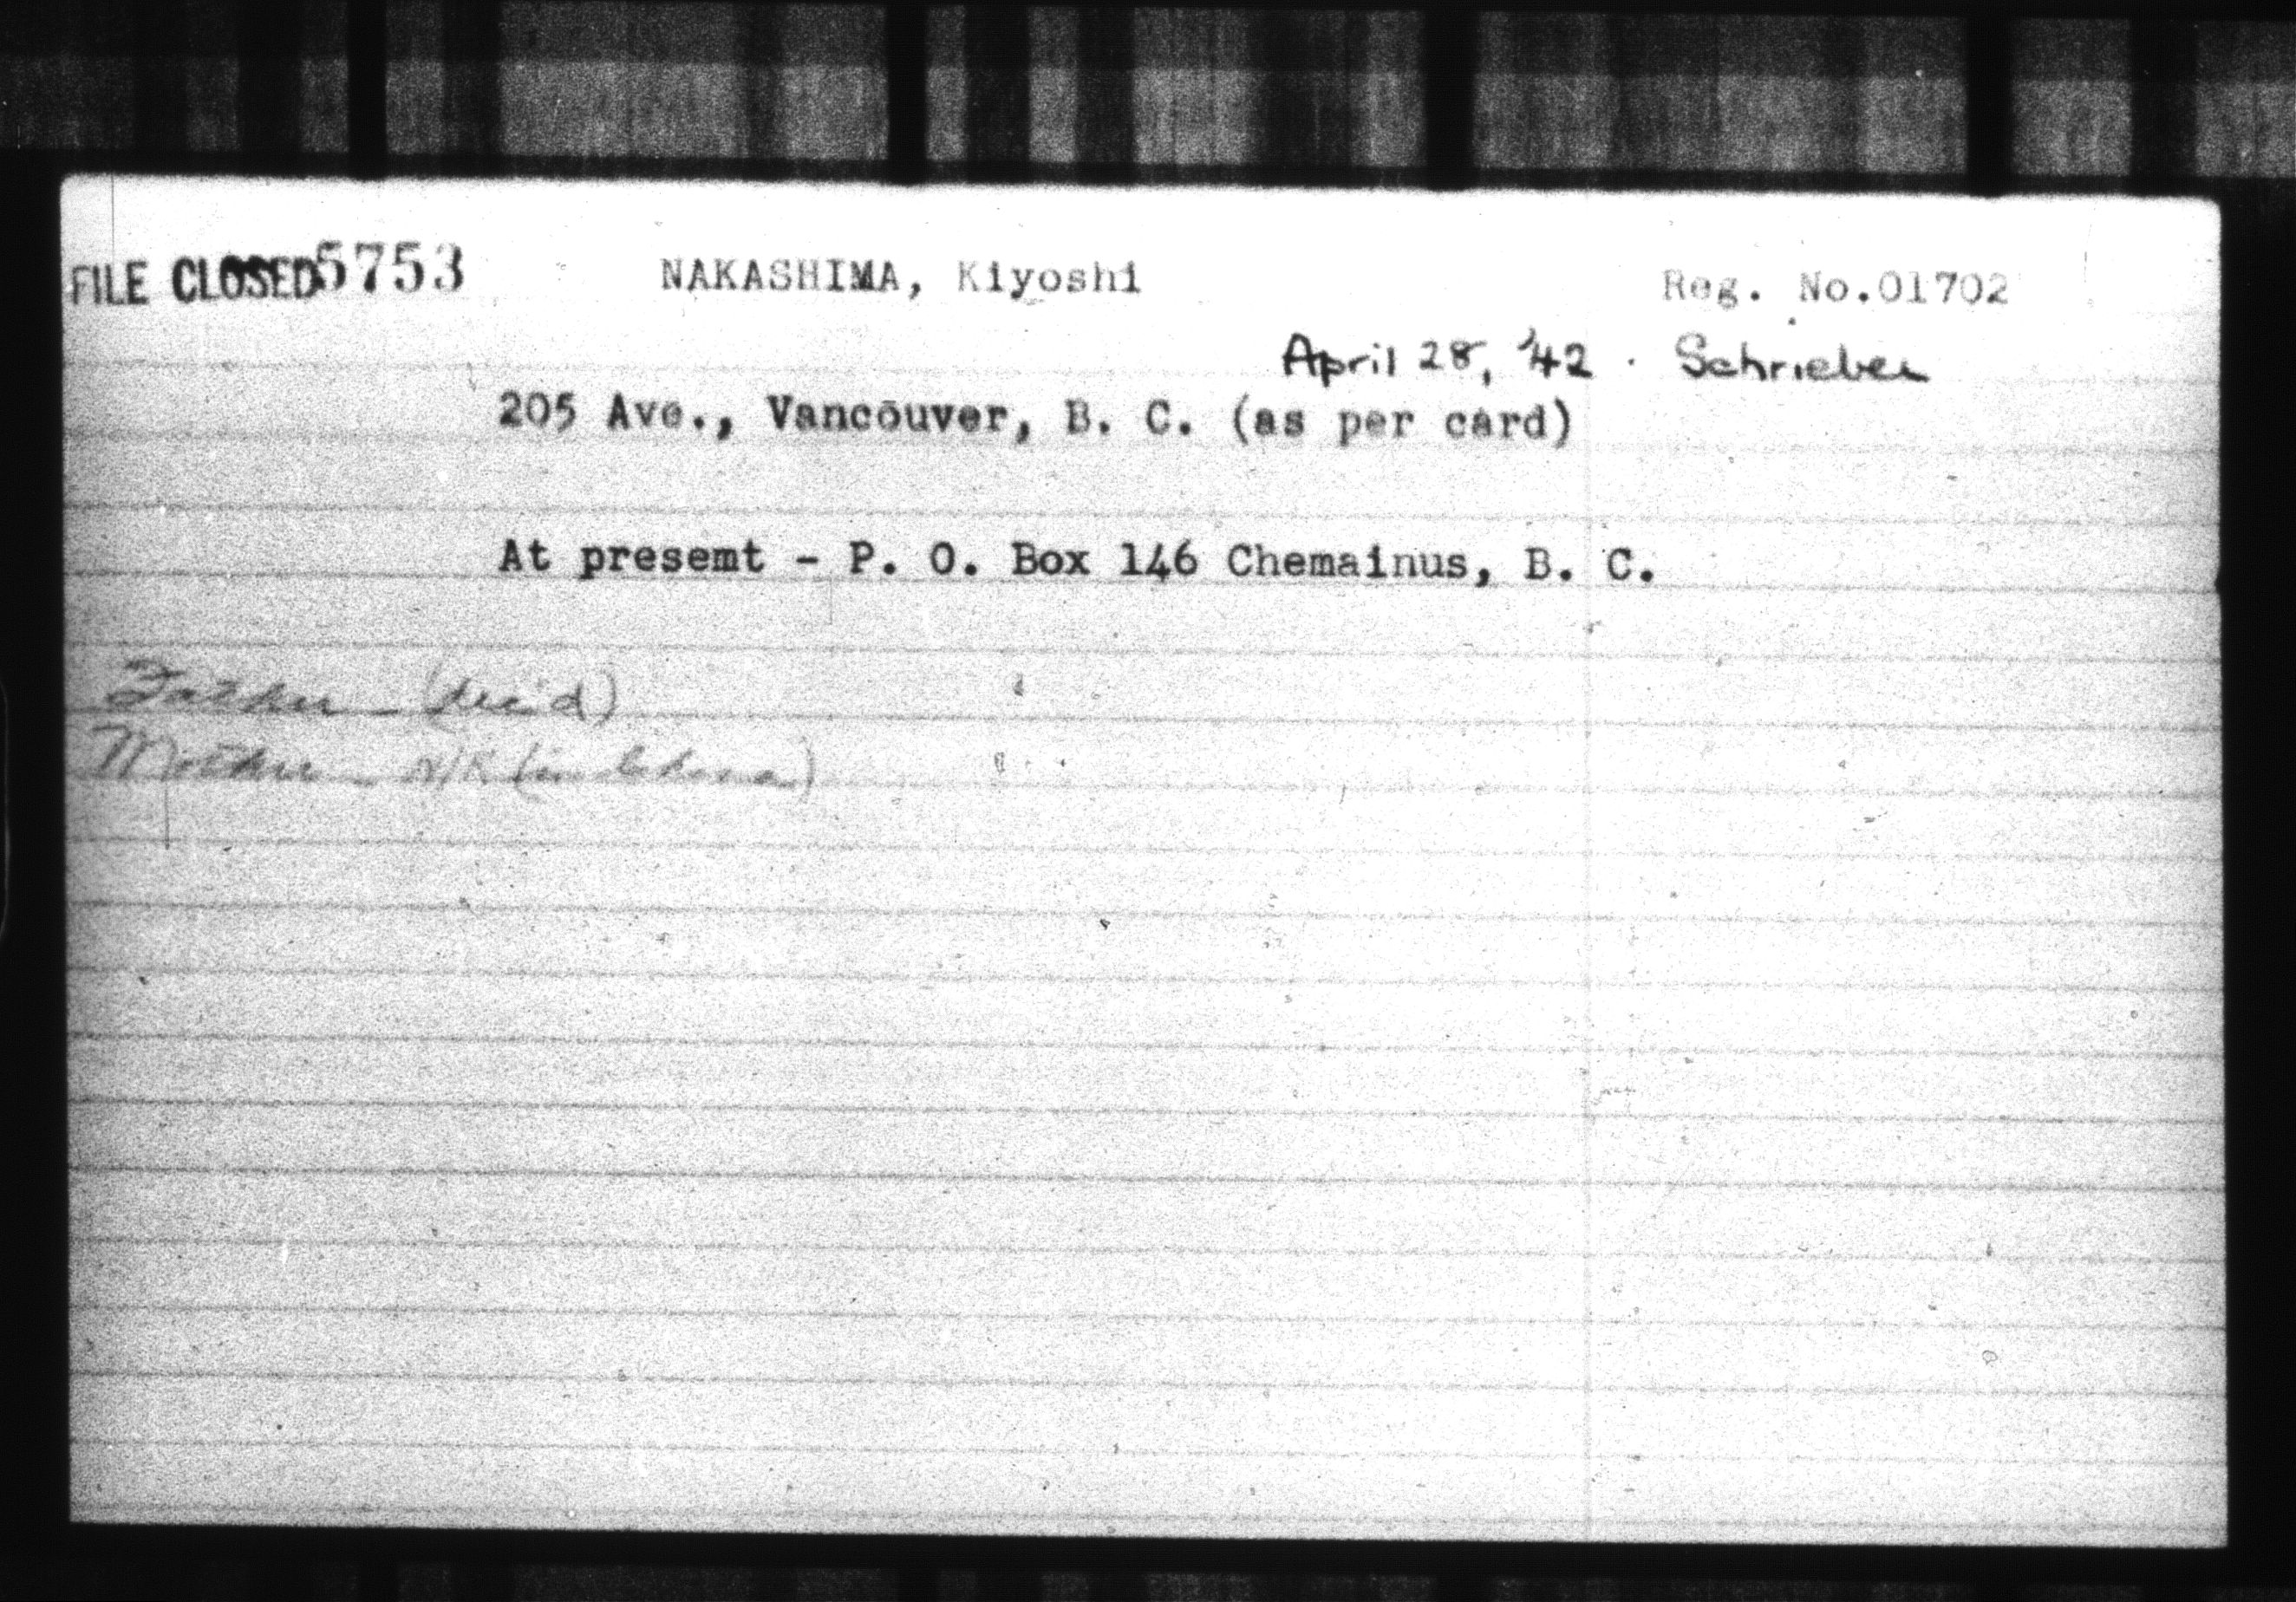 FILE CLOSED 5753 NAKASHIMA, Kiyoshi Reg. No.01702
April 28, '42 . Schrieber
205 Ave., Vancouver, B. C. (as per card)
At presemt - P. O. Box 146 Chemainus, B. C.
Father - (dec'd)
Mother - N/R (in